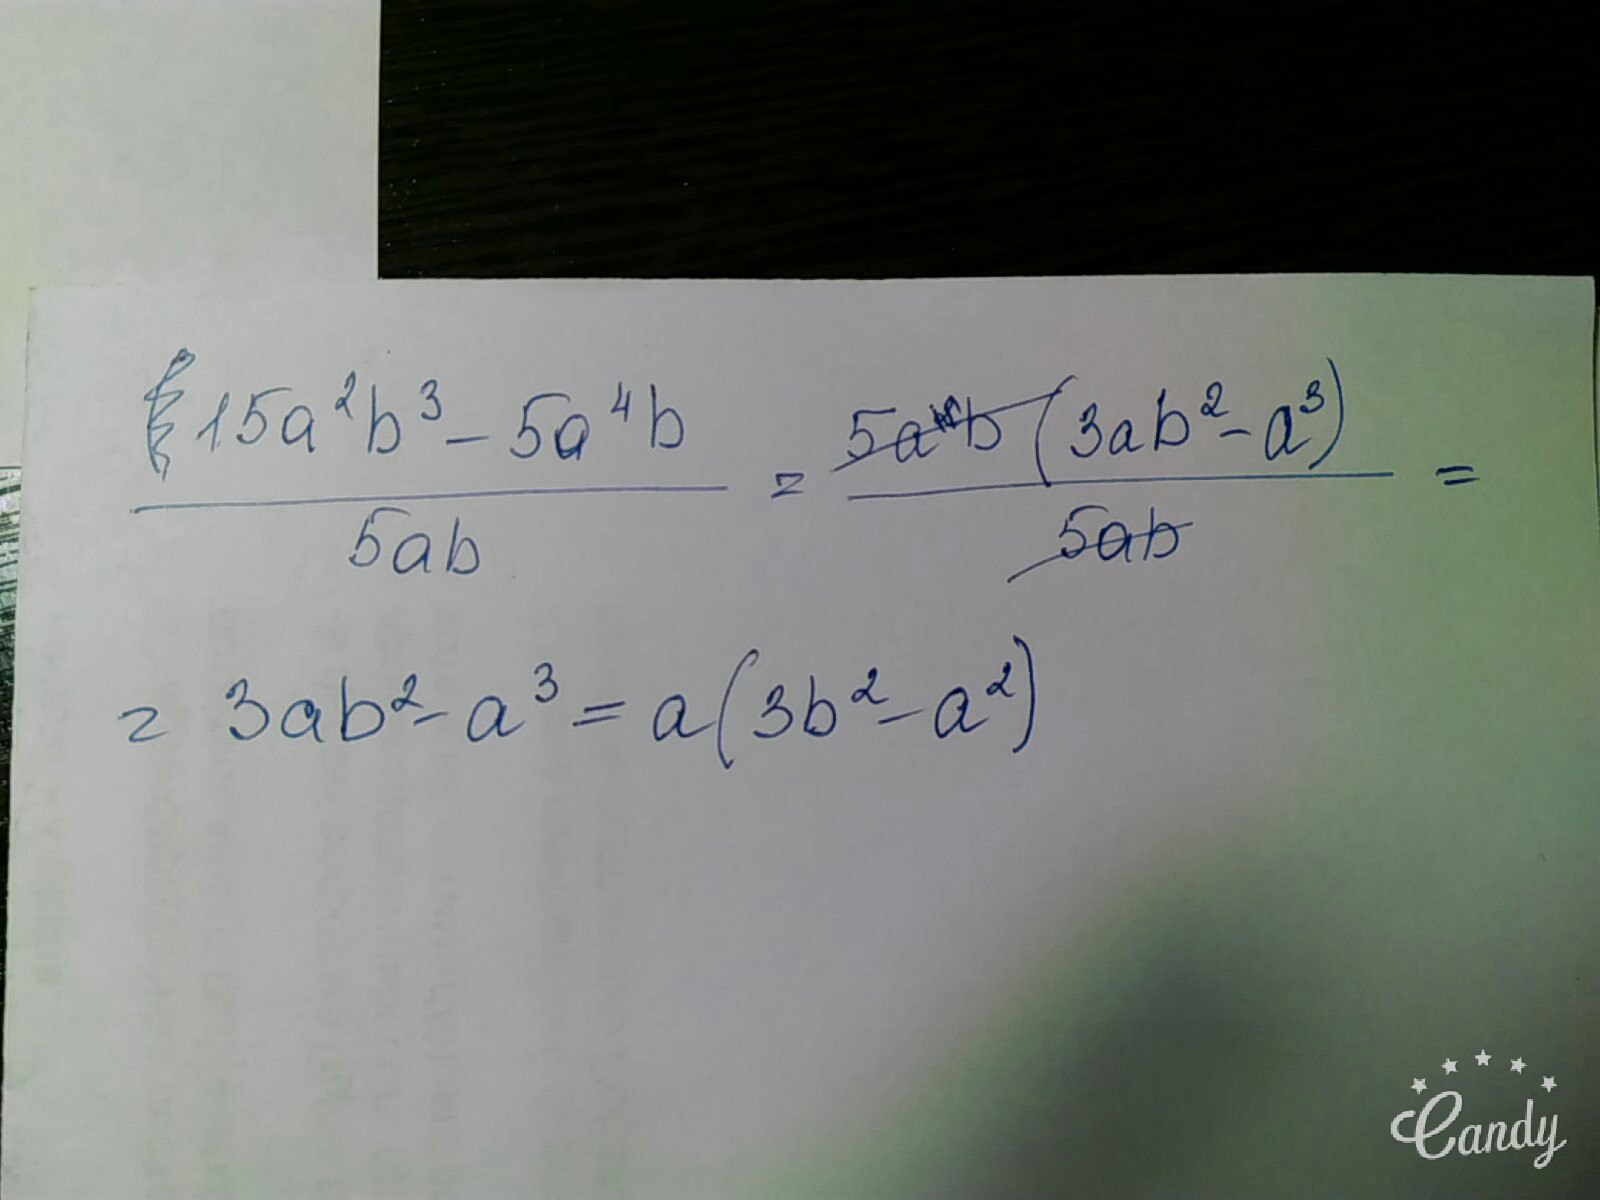 (15a²b³ - 5a⁴b)/(5ab) = (5ab(3ab² - a³))/(5ab) =
= 3ab² - a³ = a(3b² - a²)
Candy